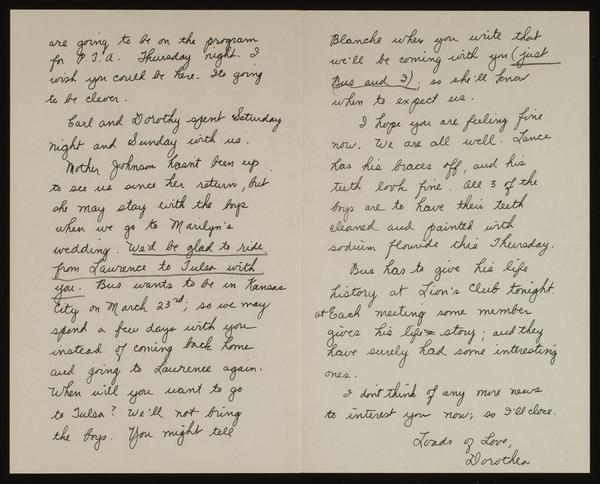 are going to be on the program
for P.T.A. Thursday night. I
wish you could be here. Its going
to be clever.
Carl and Dorothy spent Saturday
night and Sunday with us.
Mother Johnson hasn't been up
to see us since her return, but
she may stay with the boys
when we go to Marilyn's
wedding. We'd be glad to ride
from Lawrence to Tulsa with
you. Bus wants to be in Kansas
City on March 23rd; so we may
spend a few days with you
instead of coming back home
and going to Lawrence again.
When will you want to go
to Tulsa? We'll not bring
the boys. You might tell
Blanche when you write that
we'll be coming with you (just
Bus and I); so she'll know
when to expect us.
I hope you are feeling fine
now. We are all well. Lance
has his braces off, and his
teeth look fine. All 3 of the
boys are to have their teeth
cleaned and painted with
sodium flouride this Thursday.
Bus has to give his life
history at Lion's Club tonight.
at Each meeting some member
gives his life story; and they
have surely had some interesting
ones.
I don't think of any more news
to interest you now; so I'll close.
Loads of Love,
Dorothea